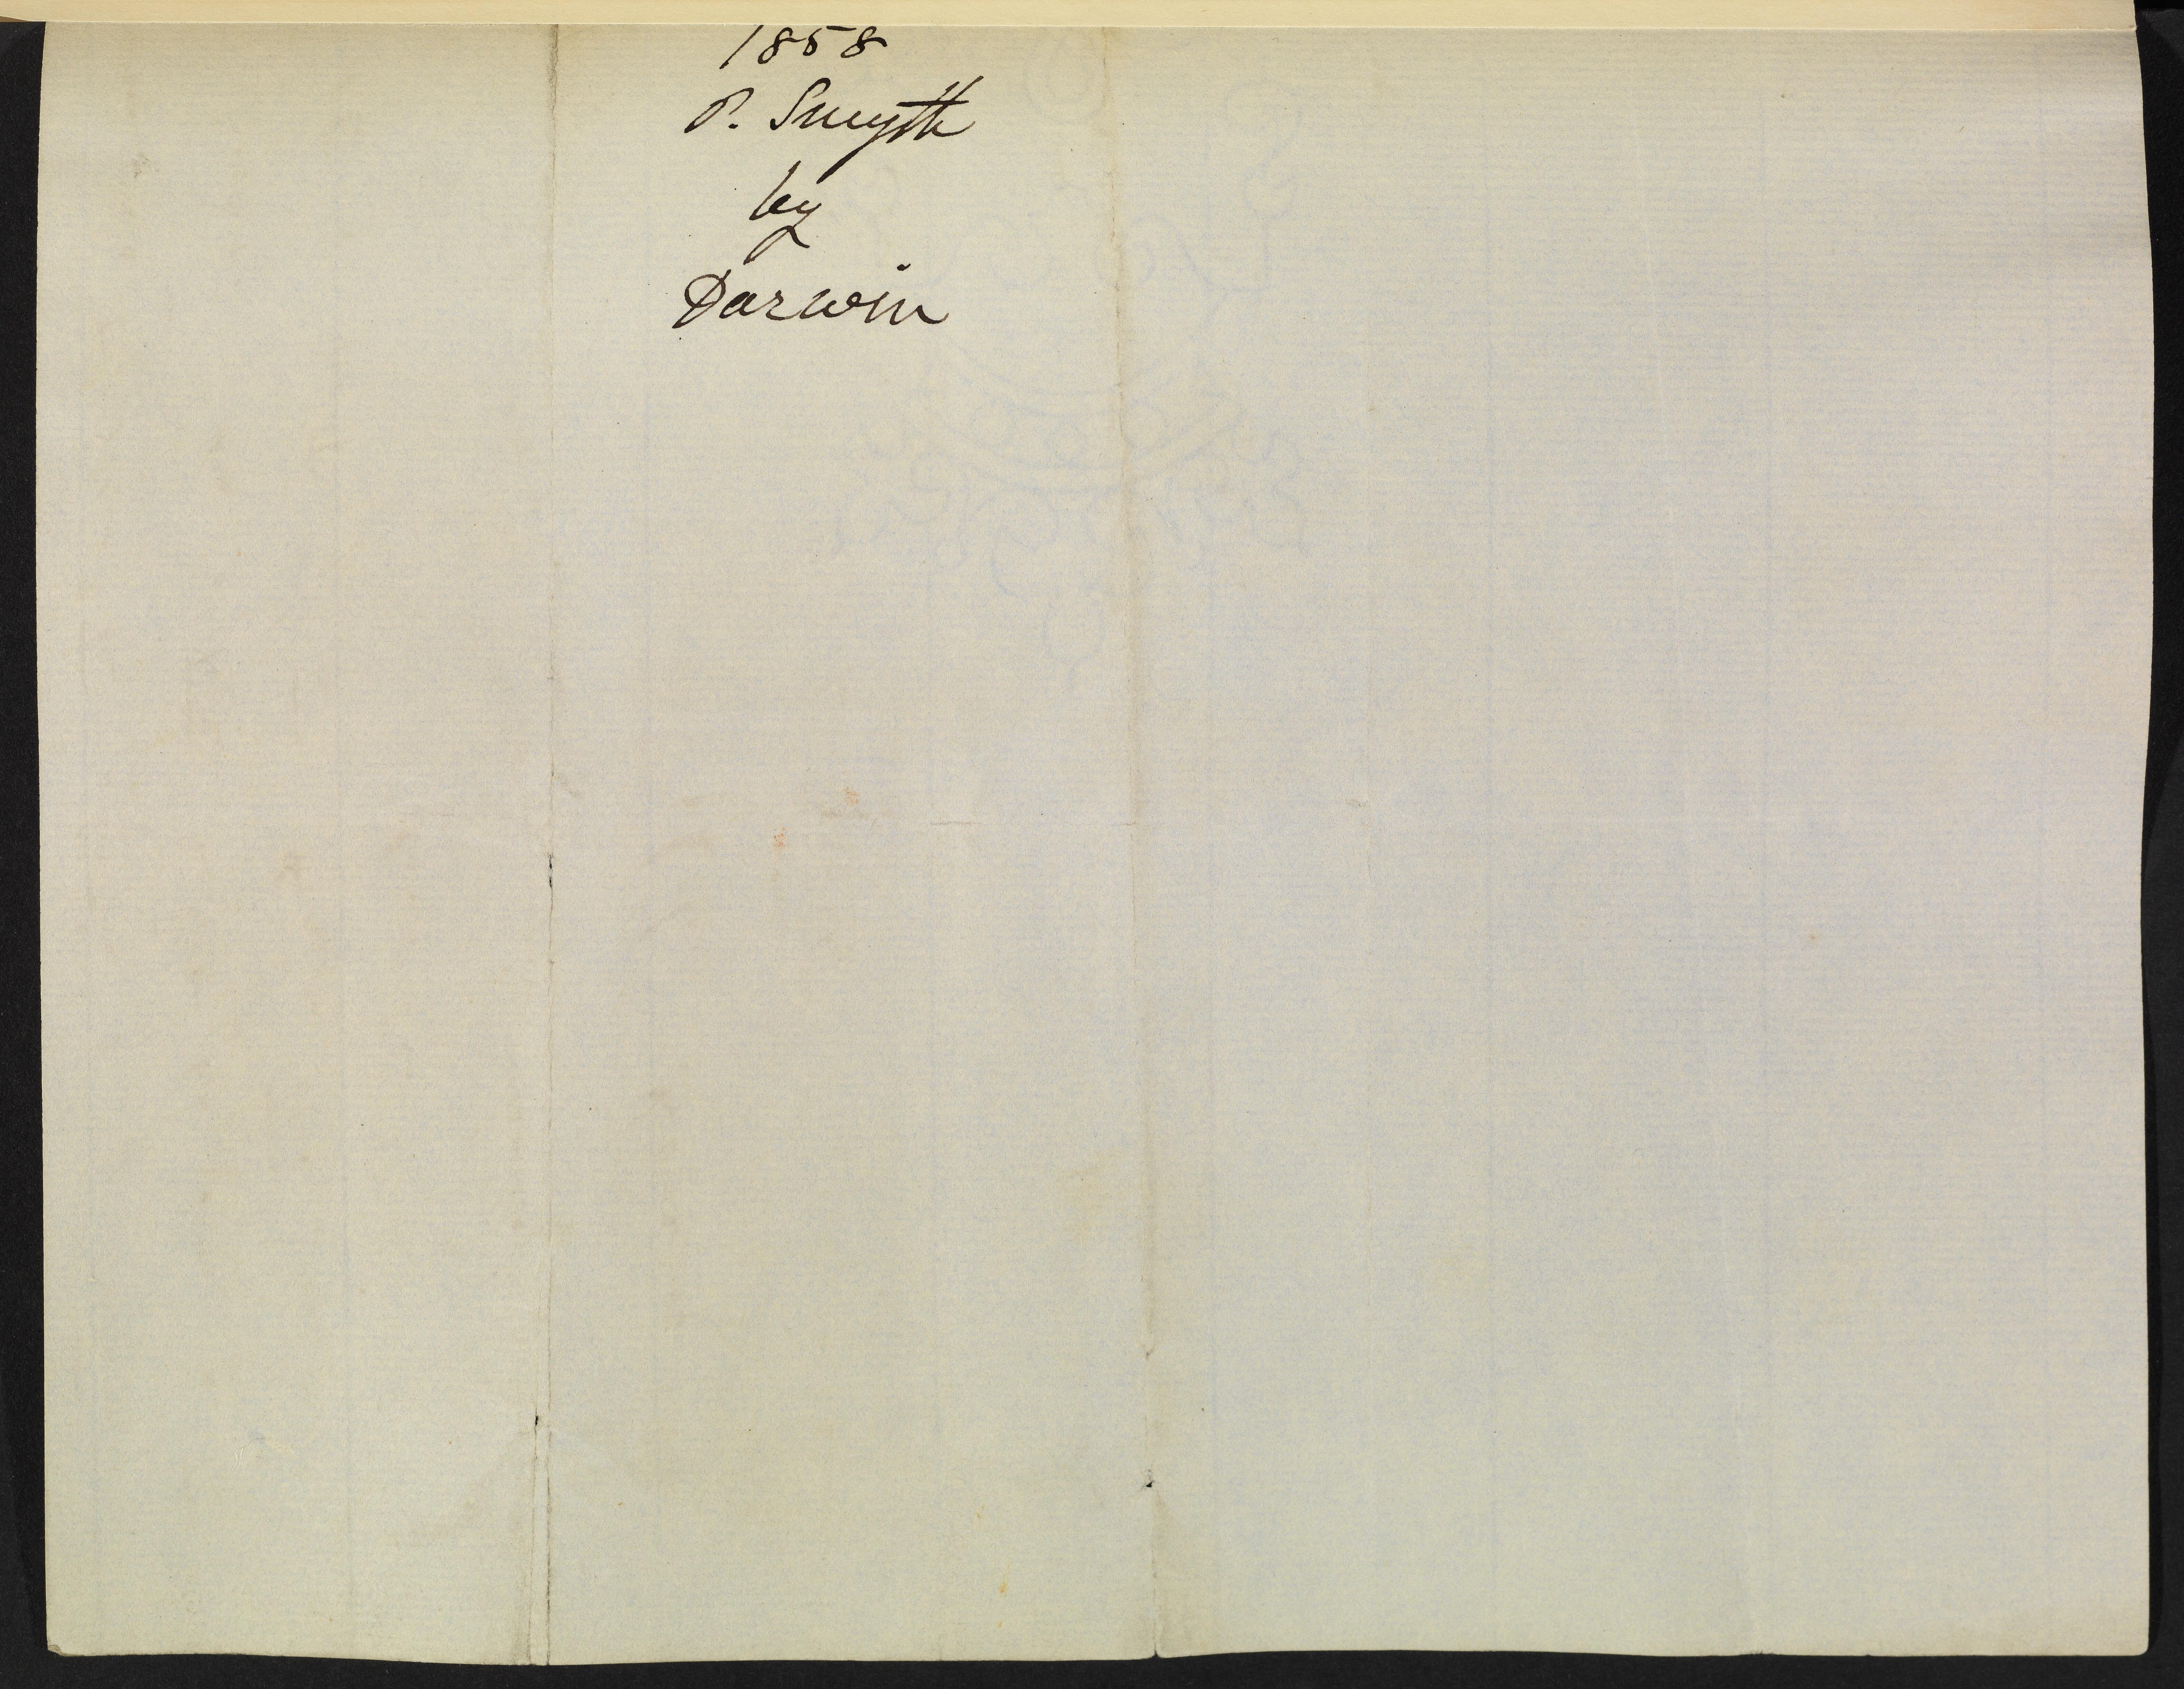 1858
P. Smyth
by
Darwin